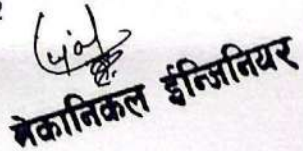 मेकानिकल ईन्जिनियर